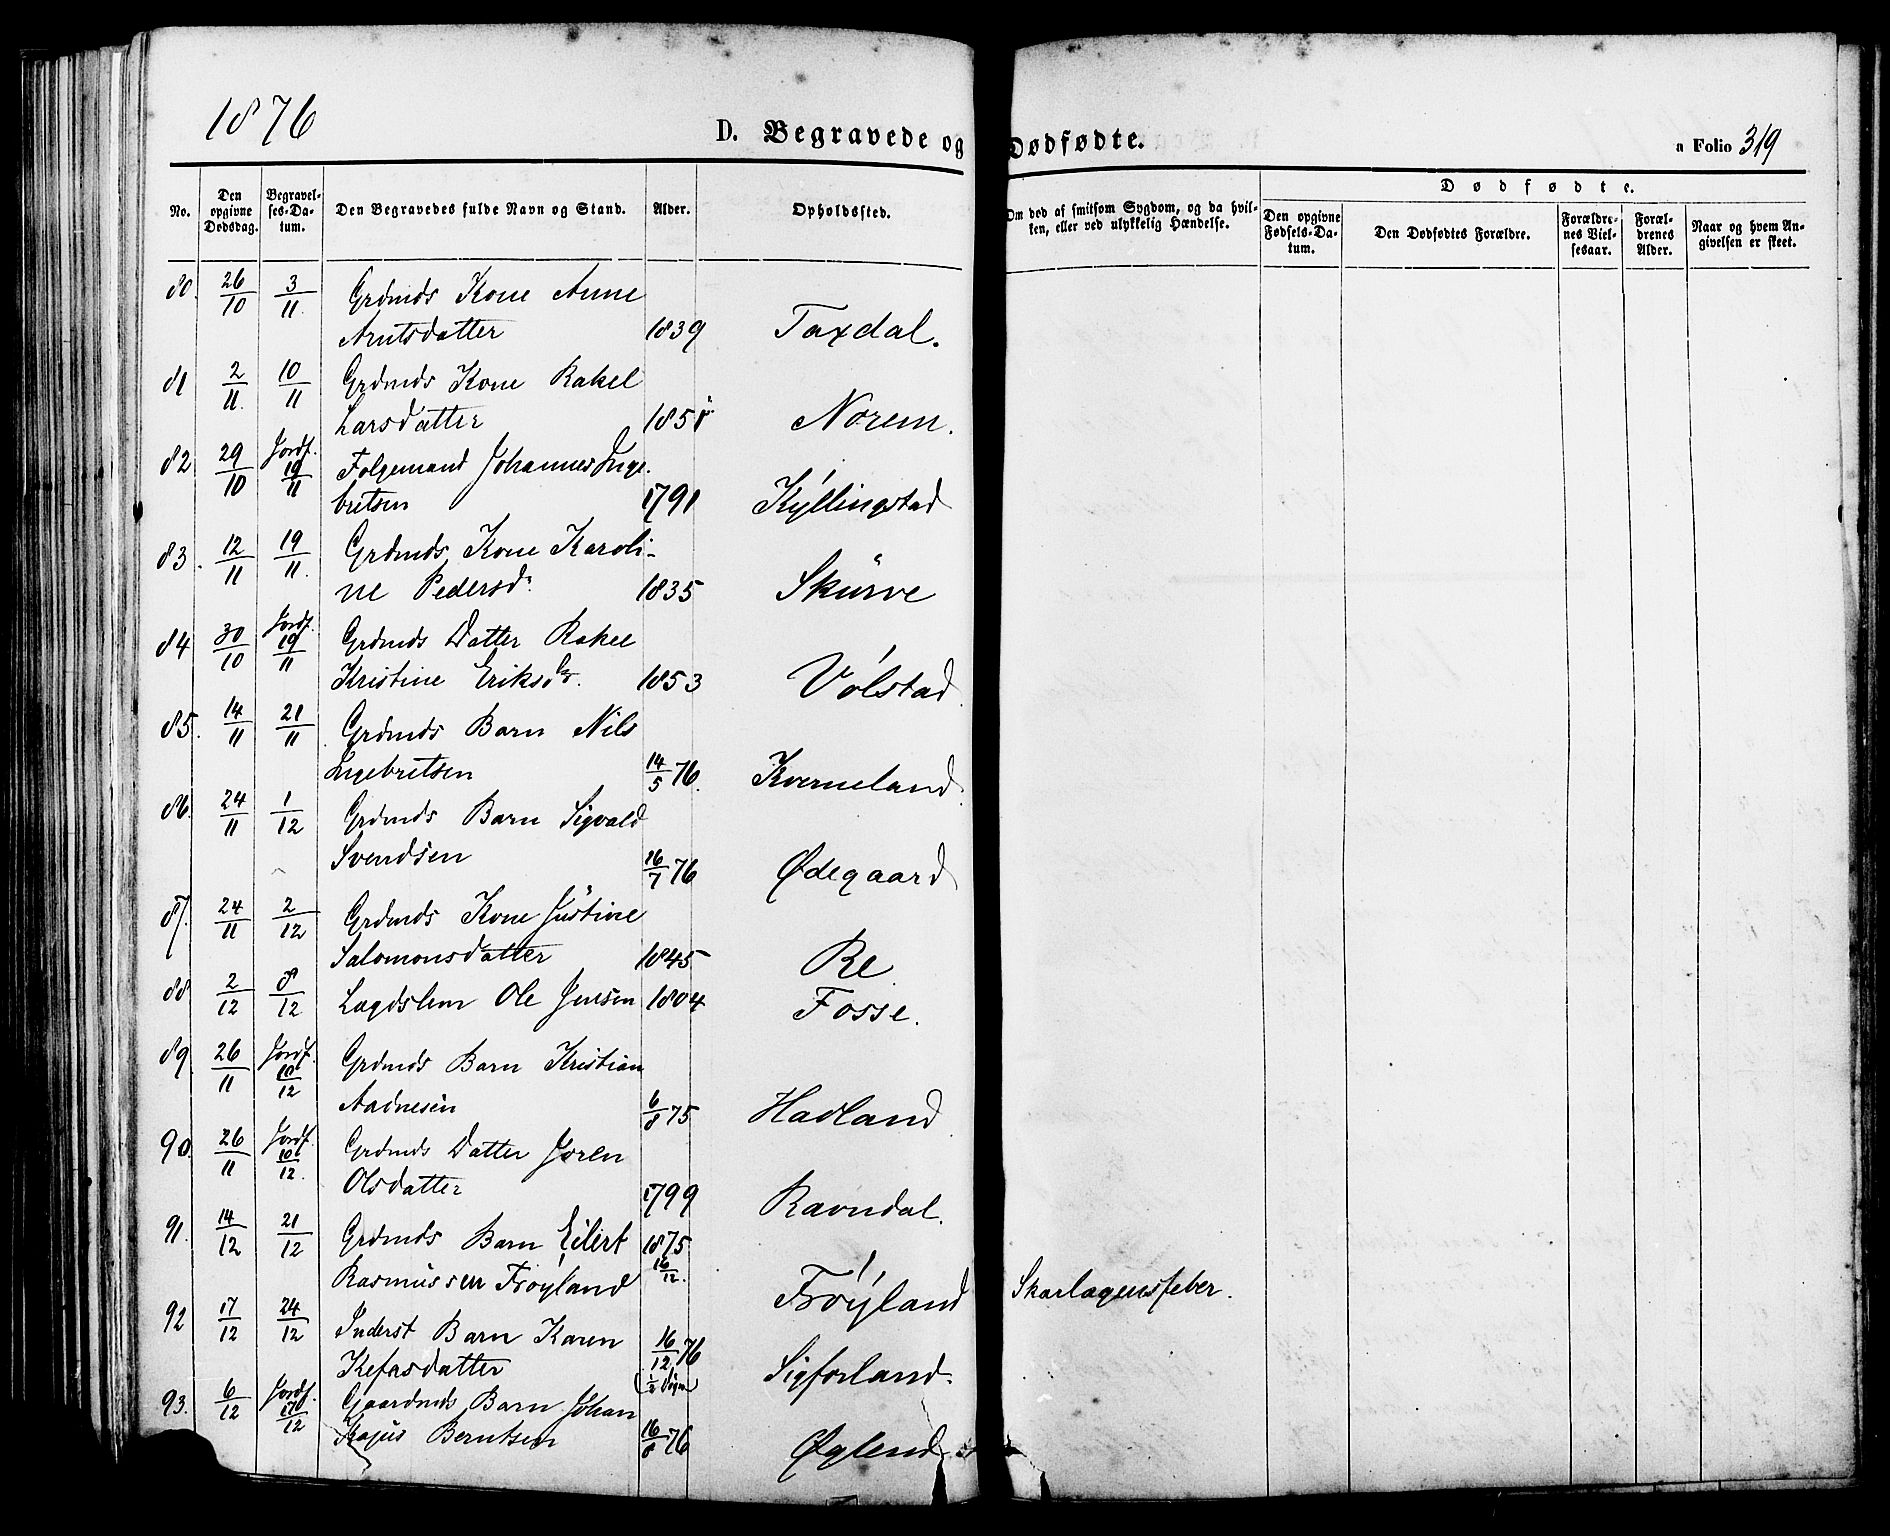 1876
D. Begravede og Dødfødte.
a Folio 319
No.
Den opgivne Dødsdag.
Begravelses-Datum.
Den Begravedes fulde Navn og Stand.
Alder.
Opholdssted.
Om død af smitsom Sygdom, og da hvilken, eller ved ulykkelig Hændelse.
Dødfødte.
Den opgivne Fødsels-Datum.
Den Dødfødtes Forældre.
Forældrenes Vielsesaar.
Forældrenes Alder.
Naar og hvem Angivelsen er skeet.
80. 26/10 3/11. Grdmds Kone Anne
Arntsdatter 1839 Taxdal.
81 2/11. 10/11 Grdmds Kone Rakel
Larsdatter Norem.
82 29/10 Jordf. 19/11 Følgemand Johannes Inge-
britsen 1791 Kyllingstad
83. 12/11 19/11. Grdmds Kone Karoli-
ne Pedersdr 1835 Skurve
84 30/10 Jordf. 19/11 Grdmds Datter Rakel
Kristine Eriksdtr. 1853 Vølstad
85. 14/11 21/11 Grdmds Barn Nils
Ingebretsen 14/5 76. Kverneland.
86. 24/11 1/12 Grdmds Barn Sigvald
Svendsen 16/7 76 Ødegaard
87. 24/11 2/12 Grdmds Kone Justine
Salomonsdatter 1845 Re
88 2/12 8/12 Lægdslem Ole Jensen 1804 Fosse.
89. 26/11 Jordf. 10/12 Grdmds Barn Kristian
Aadnesen 6/8 75 Hadland
90. 26/11 Jordf. 10/12. Grdmds Datter Joren
Olsdatter 1799 Ravndal.
91. 14/12 21/12 Grdmds Barn Eilert 1875
Rasmussen Frøyland 16/12. Frøyland Skarlagensfeber.
92 17/12 24/12 Inderst Barn Karen
Kefasdatter 16/12 76 (1/2 Døgn) Sigforland.
93. 6/12 Jordf. 17/12 Gaardmds Barn Johan
Kajus Berntsen 16/8 76 Øglend